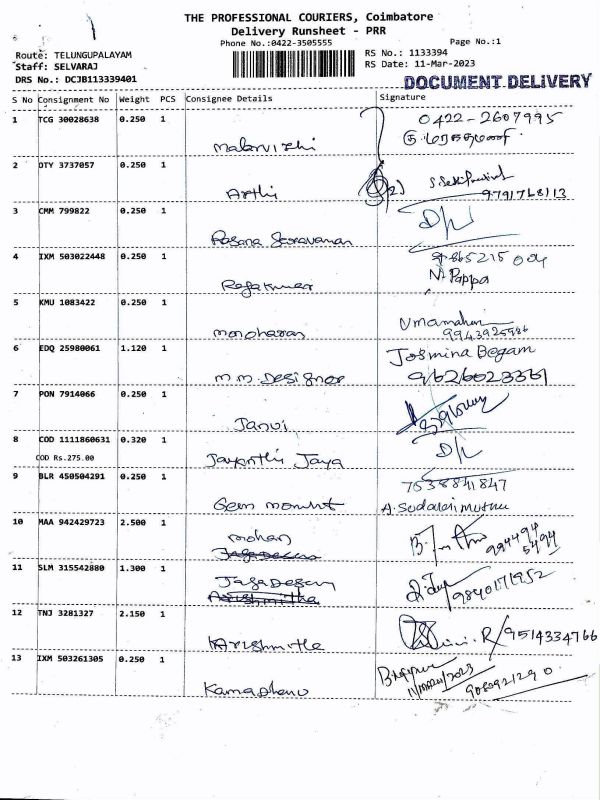 THE PROFESSIONAL COURIERS, Coimbatore
Delivery Runsheet - PRR
Phone No.:0422-3505555
Page No.:1
Route: TELUNGUPALAYAM
RS No.: 1133394
Staff: SELVARAJ
RS Date: 11-Mar-2023
DRS No.: DCJB113339401
DOCUMENT DELIVERY
S No Consignment No Weight PCS Consignee Details Signature
1 TCG 30028638 0.250 1 0422-2607995
Malarvizhi
2 DTY 3737057 0.250 1
Arthi 9791768113
3 CMM 799822 0.250 1 D/L
Rasana Saravanan
4 IXM 503022448 0.250 1
Rajakumar N. Pappa
5 KMU 1083422 0.250 1
manoharan Umamahen
9943925986
6 EDQ 25980061 1.120 1 Josmina Begam
m.m. Designor
7 PON 7914066 0.250 1
Janvi
8 COD 1111860631 0.320 1 D/L
COD Rs.275.00
Jayanthi Jaya
9 BLR 450504291 0.250 1 7538841847
Gem
10 MAA 942429723 2.500 1
mohan 994494
5494
11 SLM 315542880 1.300 1
Jagadesan
12 TNJ 3281327 2.150 1 R/9514334766
Krishmithe
13 IXM 503261305 0.250 1
11/MAR/2023
Kamadhenu